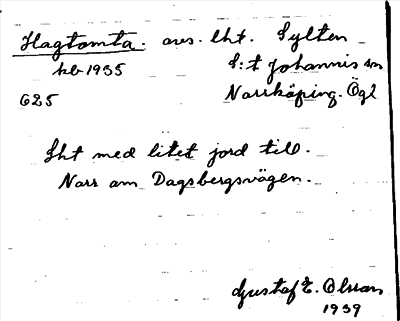 Hagtomta. avs. lht. Sylten
kb 1935 S:t Johannis sn
625 Norrköping. Ögl
Lht med litet jord till.
Norr om Dagsbergsvägen.
Gustaf E. Olsson
1939